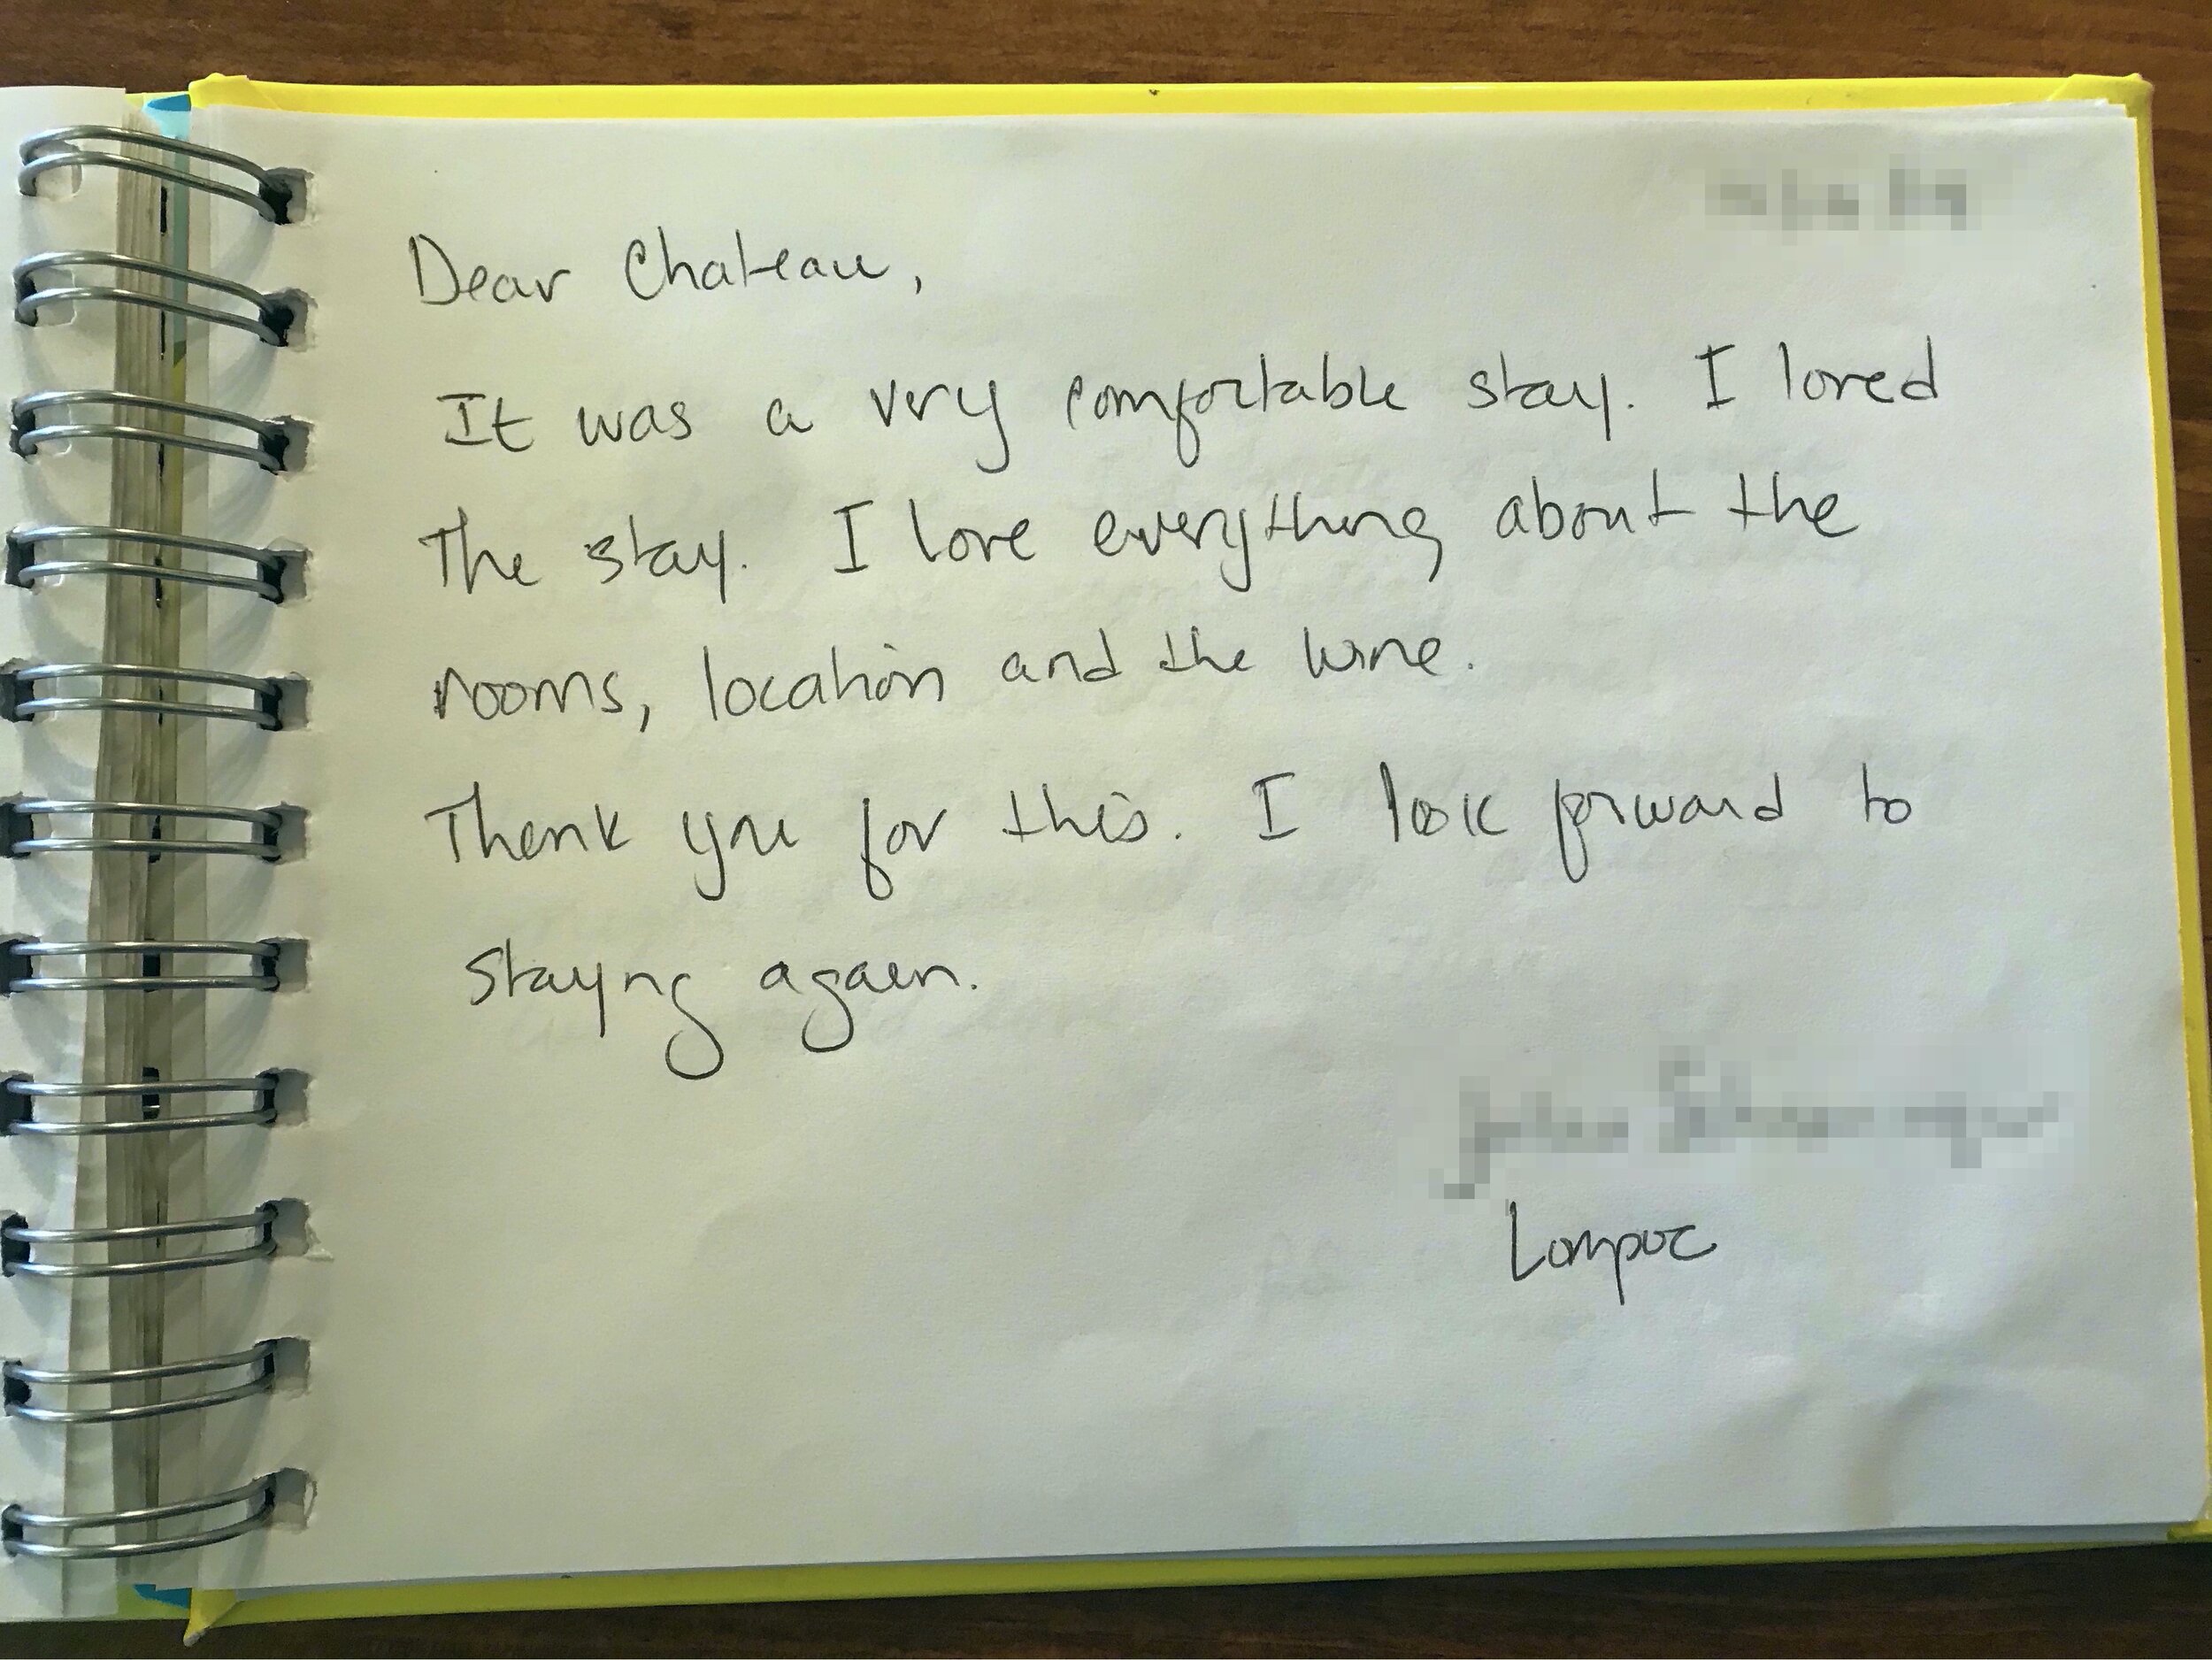 Dear Chateau,
It was a very comfortable stay. I loved
The stay. I love everything about the
rooms, location and the wine.
Thank you for this. I look forward to
staying again.
Lompoc